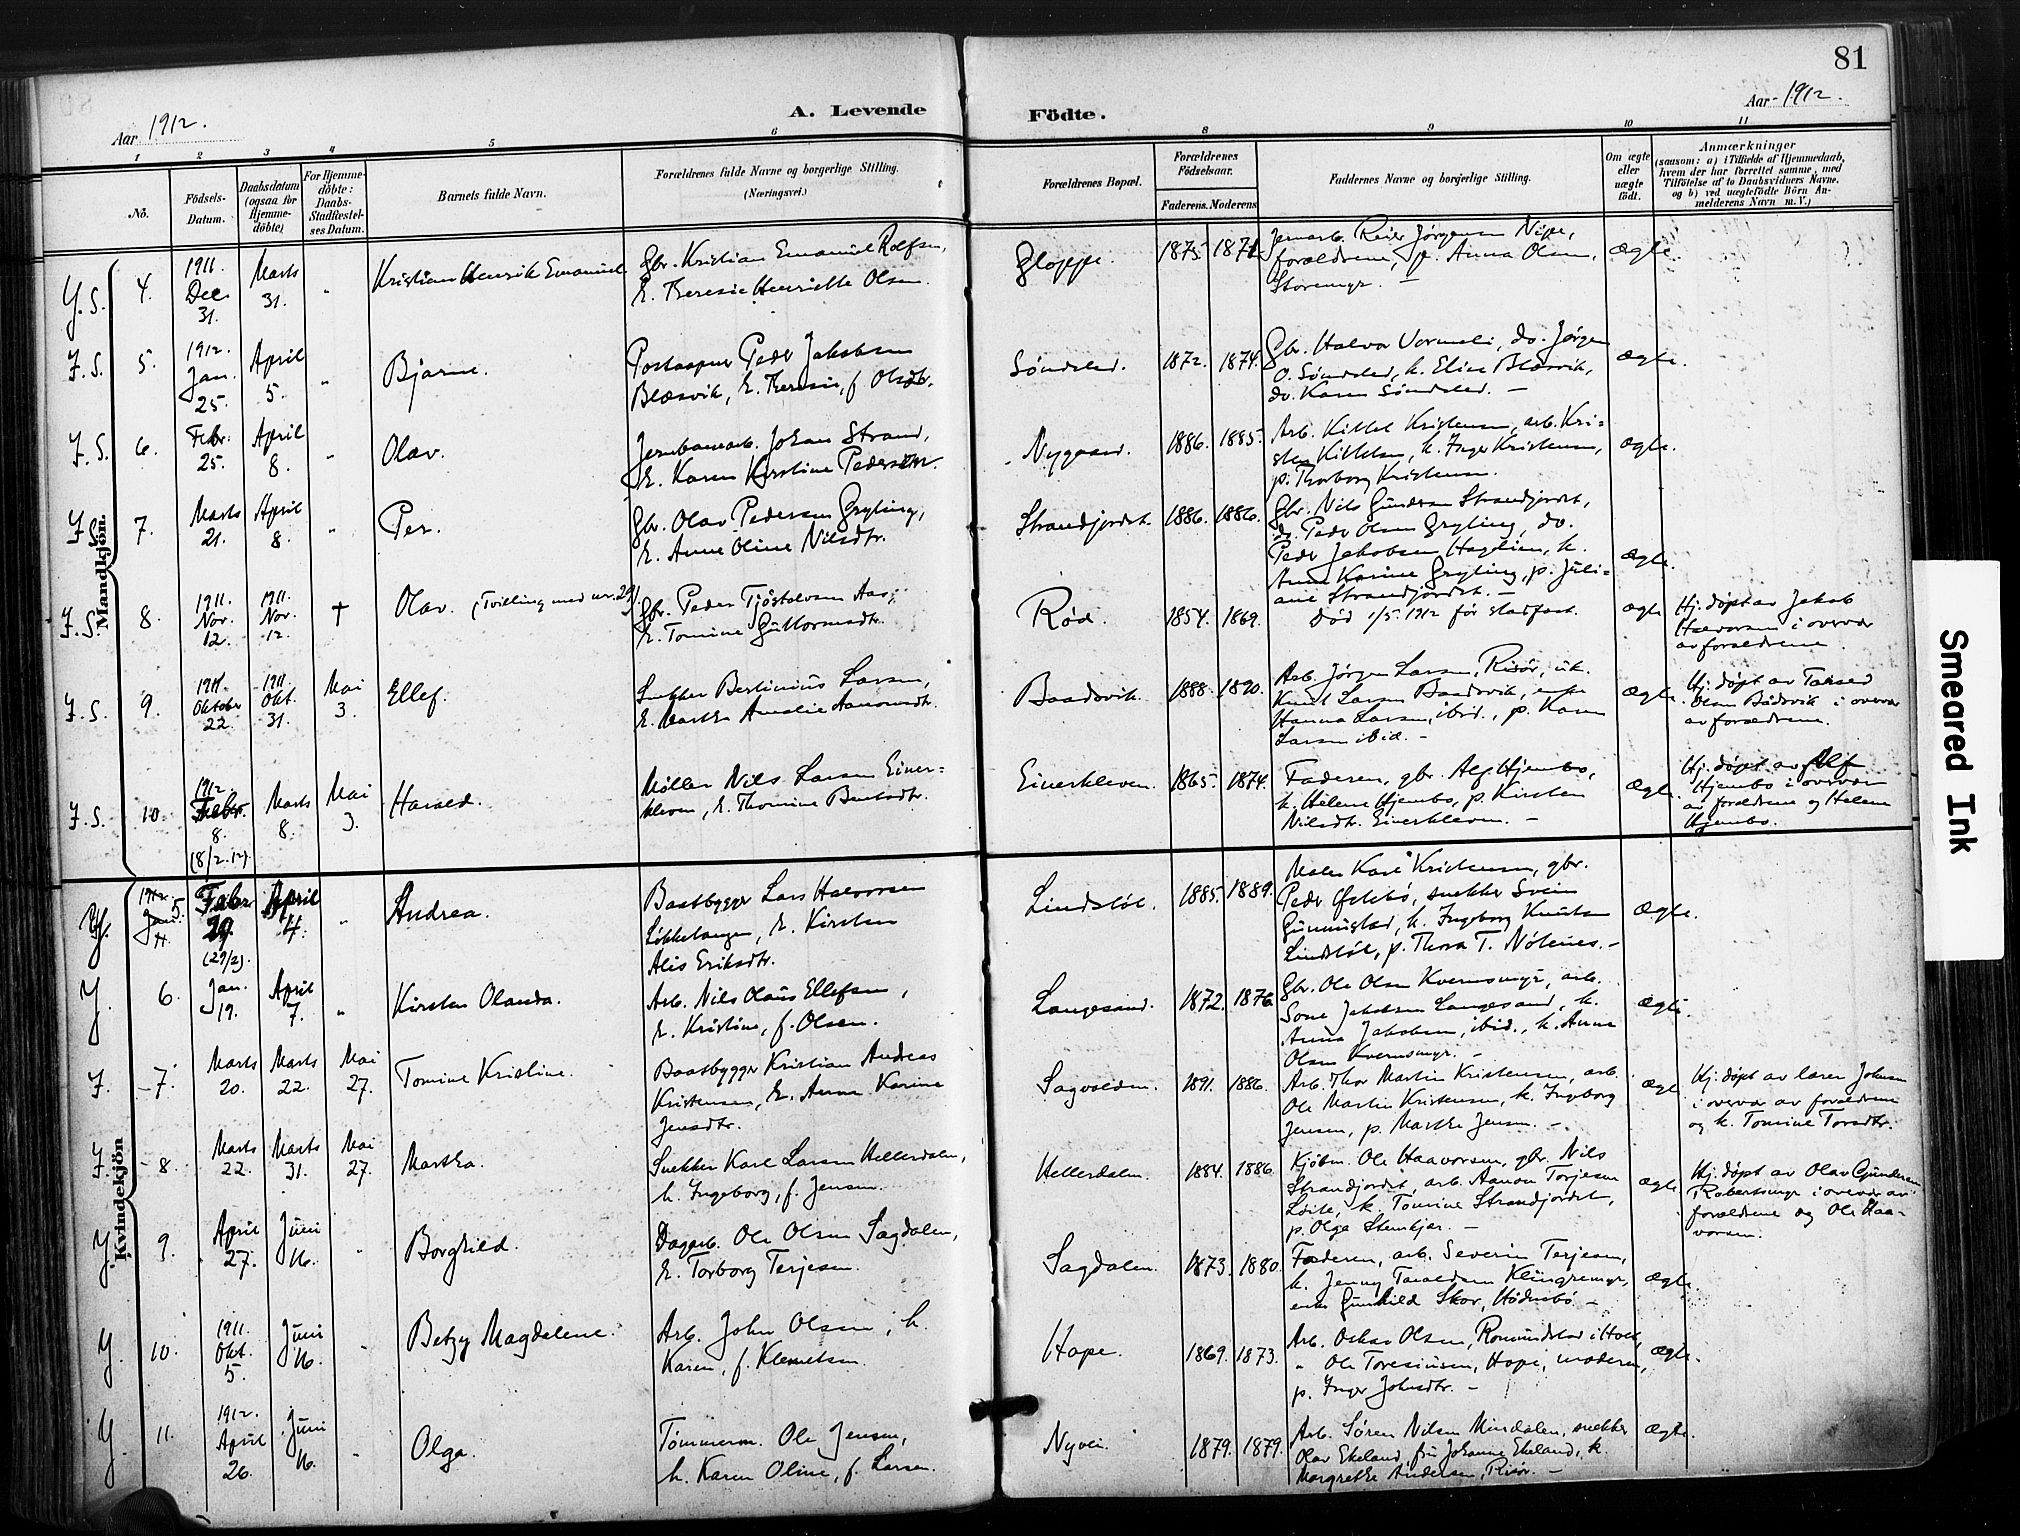 81
Aar 1912.
A. Levende Födte.
Aar 1912.
1 2 3 4 5 6 8 9 10 11
No.
Födsels-Datum.
Daabsdatum (ogsaa for Hjemme-döbte)
For Hjemme-döbte: Daabs-Stadfæstel-ses Datum.
Barnets fulde Navn.
Forældrenes fulde Navne og borgerlige Stilling.
(Næringsvei.)
Forældrenes Bopæl.
Forældrenes Födselsaar.
Faderens. Moderens
Faddernes Navne og borgerlige Stilling.
Om ægte eller uægte födt.
Anmærkninger
(saasom: a) i Tilfælde af Hjemmedaab,
hvem der har forrettet samme, med
Tilföielse af to Daabsvidners Navne.
og b) ved uægtefödte Börn An-
melderens Navn m. V.)
Mandkjön.
4. 1911. Dec. 31. Marts 31. " Kristian Henrik Emanuel
Gbr. Kristian Emanuel Rolfsen,
E. Theresie Henriette Olsen.
Gloppe. 1875. 1871
Jernarb. Reier Jørgensen Nipe,
forældrene, p. Anna Olsen,
Storemyr. —
ægte.
J.S. 5. 1912. Jan. 25. April 5. " Bjarne.
Postaapner Peder Jakobsen
Blæsvik, E. Theresie, f. Olsdtr.
Søndeled. 1872. 1874.
Gbr. Halvor Vormeli, do. Jørgen
O. Søndeled, k. Elise Blæsvik,
do. Karen Søndeled. —
ægte.
J.S. 6. Febr. 25. April 8. " Olav.
Jernbanearb. Johan Strand,
E. Karen Kirstine Pedersen.
Nygaard. 1886. 1885.
Arb. Kittel Kristensen, arb. Kri=
sten Kittelsen, k. Inger Kristensen,
p. Thorborg Kristensen.
ægte.
7. Marts 21. April 8. " Per.
Gbr. Olav Pedersen Gryting,
E. Anne Oline Nilsdtr.
Strandjordet. 1886. 1886.
Gbr. Nils Gundersen Strandjordet,
do. Peder Olsen Gryting, do.
Peder Jakobsen Hagelien, k.
Anne Karine Gryting, p. Juli=
ane Strandjordet. —
ægte.
J.S. 8. 1911. Nov. 12. 1911. Nov. 12. † Olav. (Tvilling med nr. 29)
Gbr. Peder Tjøstolvsen Aas,
E. Tomine Guttormsdtr.
Rød. 1854. 1869.
Død 1/5 1912 før stadfæst.
ægte
Hj. døpt av Jakob
Halvorsen i overvær
av forældrene.
J.S. 9. 1911. Oktober 22. 1911. Okt. 31. Mai 3. Ellef.
Snekker Bertinius Larsen,
E. Marthe Amalie Aanonsdtr.
Baadsvik. 1888. 1890.
Arb. Jørgen Larsen, Risør, uk.
Knut Larsen Baadsvik, enke
Hanna Larsen, ibid., p. Karen
Larsen ibid. —
ægte.
Hj. døpt av Tarjed
Olsen Bådsvik i overvær
av forældrene.
J.S. 10. 1912 Febr. 8. (8/2.12). Marts 8. Mai 3. Harald.
Møller Nils Larsen Einer=
kleven, E. Thomine Bentsdtr.
Einerkleven. 1865. 1874.
Faderen, gbr. Alf Hjembo,
k. Helene Hjembo, p. Kirsten
Nilsdtr. Einerkleven. —
ægte.
Hj. døpt av Alf
Hjembo i overvær
av forældrene og Helene
Hjembo.
Kvindekjön
5. Febr. 29. (29/2). April 4. " Andrea.
Baatbygger Lars Halvorsen
Løkketangen, E. Kirsten
Alis Eriksdtr.
Lindstøl. 1885. 1889.
Maler Karl Kristensen, gbr.
Peder Østebø, snekker Svein
Gunnustad, k. Ingeborg Knutsen
Lindstøl, p. Thora T. Nøtenes. —
ægte.
J. 6. Jan. 19. April 7. " Kirsten Olanda.
Arb. Nils Olaus Ellefsen,
E. Kristine, f. Olsen.
Langesand. 1872. 1876
Gbr. Ole Olsen Kvernsmyr, arb.
Jakobsen Langesand, k.
Anna Jakobsen, ibid., k. Anne
Olsen Kvernsmyr. —
ægte.
J. 7. Marts 20. Marts 22. Mai 27. Tomine Kristine.
Baatbygger Kristian Andreas
Kristensen, E. Anne Karine
Jensdtr.
Sagvolden. 1891. 1886.
Arb. Thor Martin Kristensen, arb.
Ole Martin Kristensen, k. Ingeborg
Jensen, p. Marthe Jensen. —
ægte
Hj. døpt av lærer Johnsen
i overvær av forældrene
og k. Tomine Torsdtr.
J. 8. Marts 22. Marts 31. Mai 27. Martha.
Snekker Karl Larsen Hellerdalen,
k. Ingeborg, f. Jensen.
Hellerdalen. 1884. 1886.
Kjøbm. Ole Haavorsen, gbr. Nils
Strandjordet, arb. Aanon Torjesen
Løite, k. Tomine Strandjordet,
p. Olga Stenkjær. —
ægte
Hj. døpt av Olav Gundersen
Robertsmyr i overvær av
forældrene og Ole Haa-
vorsen.
J. 9. April 27. Juni 16. " Borghild.
Dagarb. Ole Olsen Sagdalen,
E. Torborg Terjesen.
Sagdalen. 1873. 1880.
Faderen, arb. Severin Terjesen,
k. Jenny Taraldsen Klungremyr,
enke Gunhild Skor, Hødnebø. —
ægte
J. 10. 1911 Okt. 5. Juni 16. " Betzy Magdalene.
Arb. John Olsen, k.
Karen, f. Klemetsen.
Hope. 1869. 1873.
Arb. Oskar Olsen, Romundstad i Holt,
" Ole Toresiusen, Hope, moderen,
p. Inger Johnsdtr. —
ægte.
J. 11. 1912. April 26. Juni 16. " Olga.
Tømmerm. Ole Jensen,
k. Karen Oline, f. Larsen.
Nyvei. 1879. 1879.
Arb. Søren Nilsen Mindalen, snekker
Olav Ekeland, fru Johanne Ekeland, k.
Margrethe Andersen, Risør. —
ægte.
Smeared Ink